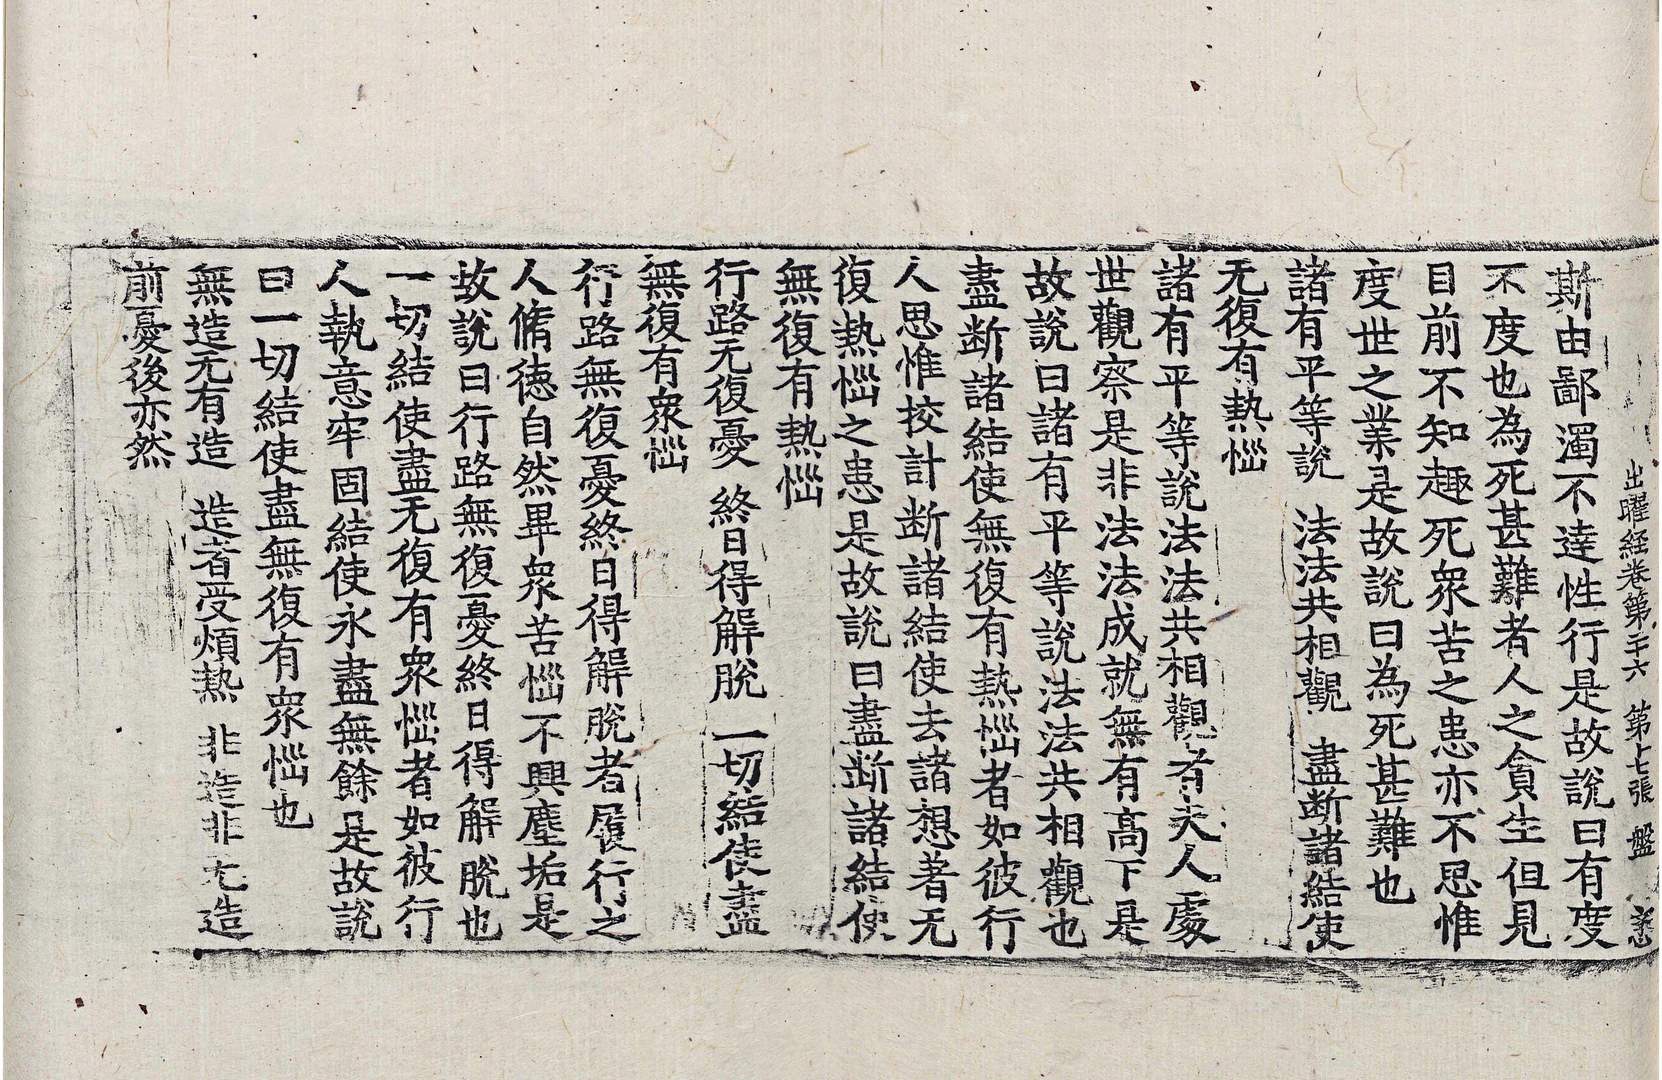 出曜経巻第二十六 第七張 盤
斯由鄙濁不達性行是故說曰有度
不度也為死甚難者人之貪生但見
目前不知趣死衆苦之患亦不思惟
度世之業是故說曰為死甚難也
諸有平等說 法法共相觀 盡斷諸結使
无復有熱惱
諸有平等說法法共相觀者夫人處
世觀察是非法法成就無有高下是
故說曰諸有平等說法法共相觀也
盡斷諸結使無復有熱惱者如彼行
人思惟挍計斷諸結使去諸想著无
復熱惱之患是故說曰盡斷諸結使
無復有熱惱
行路无復憂 終日得解脫 一切結使盡
無復有衆惱
行路無復憂終日得解脫者履行之
人脩德自然畢衆苦惱不興塵垢是
故說曰行路無復憂終日得解脫也
一切結使盡无復有衆惱者如彼行
人執意牢固結使永盡無餘是故說
曰一切結使盡無復有衆惱也
無造无有造 造者受煩熱 非造非无造
前憂後亦然